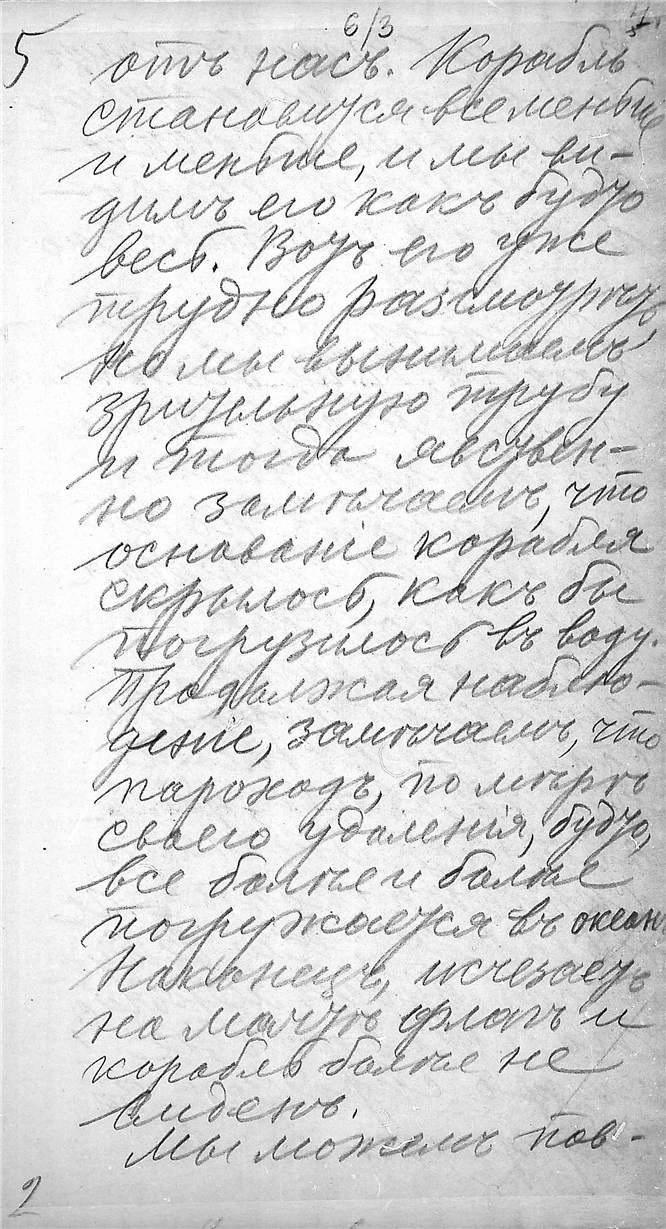 6/3
5 отъ насъ. Корабль
становится все меньше
и меньше, и мы ви-
димъ его какъ будто
весь. Вотъ его уже
трудно разсмотрѣть,
но мы вынимаемъ
зрительную трубу
и тогда явствен-
но замѣчаемъ, что
основаніе корабля
скрылось, какъ бы
погрузилось въ воду.
Продолжая наблю-
деніе, замѣчаемъ, что
пароходъ, по мѣрѣ
своего удаленія, будто,
все болѣе и болѣе
погружается въ океанъ
Наконецъ, исчезаетъ
на мачтѣ флагъ и
корабль болѣе не
виденъ.
Мы можемъ пов-
2